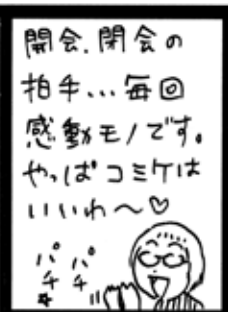 開会、閉会の
拍手…毎回
感動モノです。
やっぱコミケは
いいわ〜♡
パチパチ